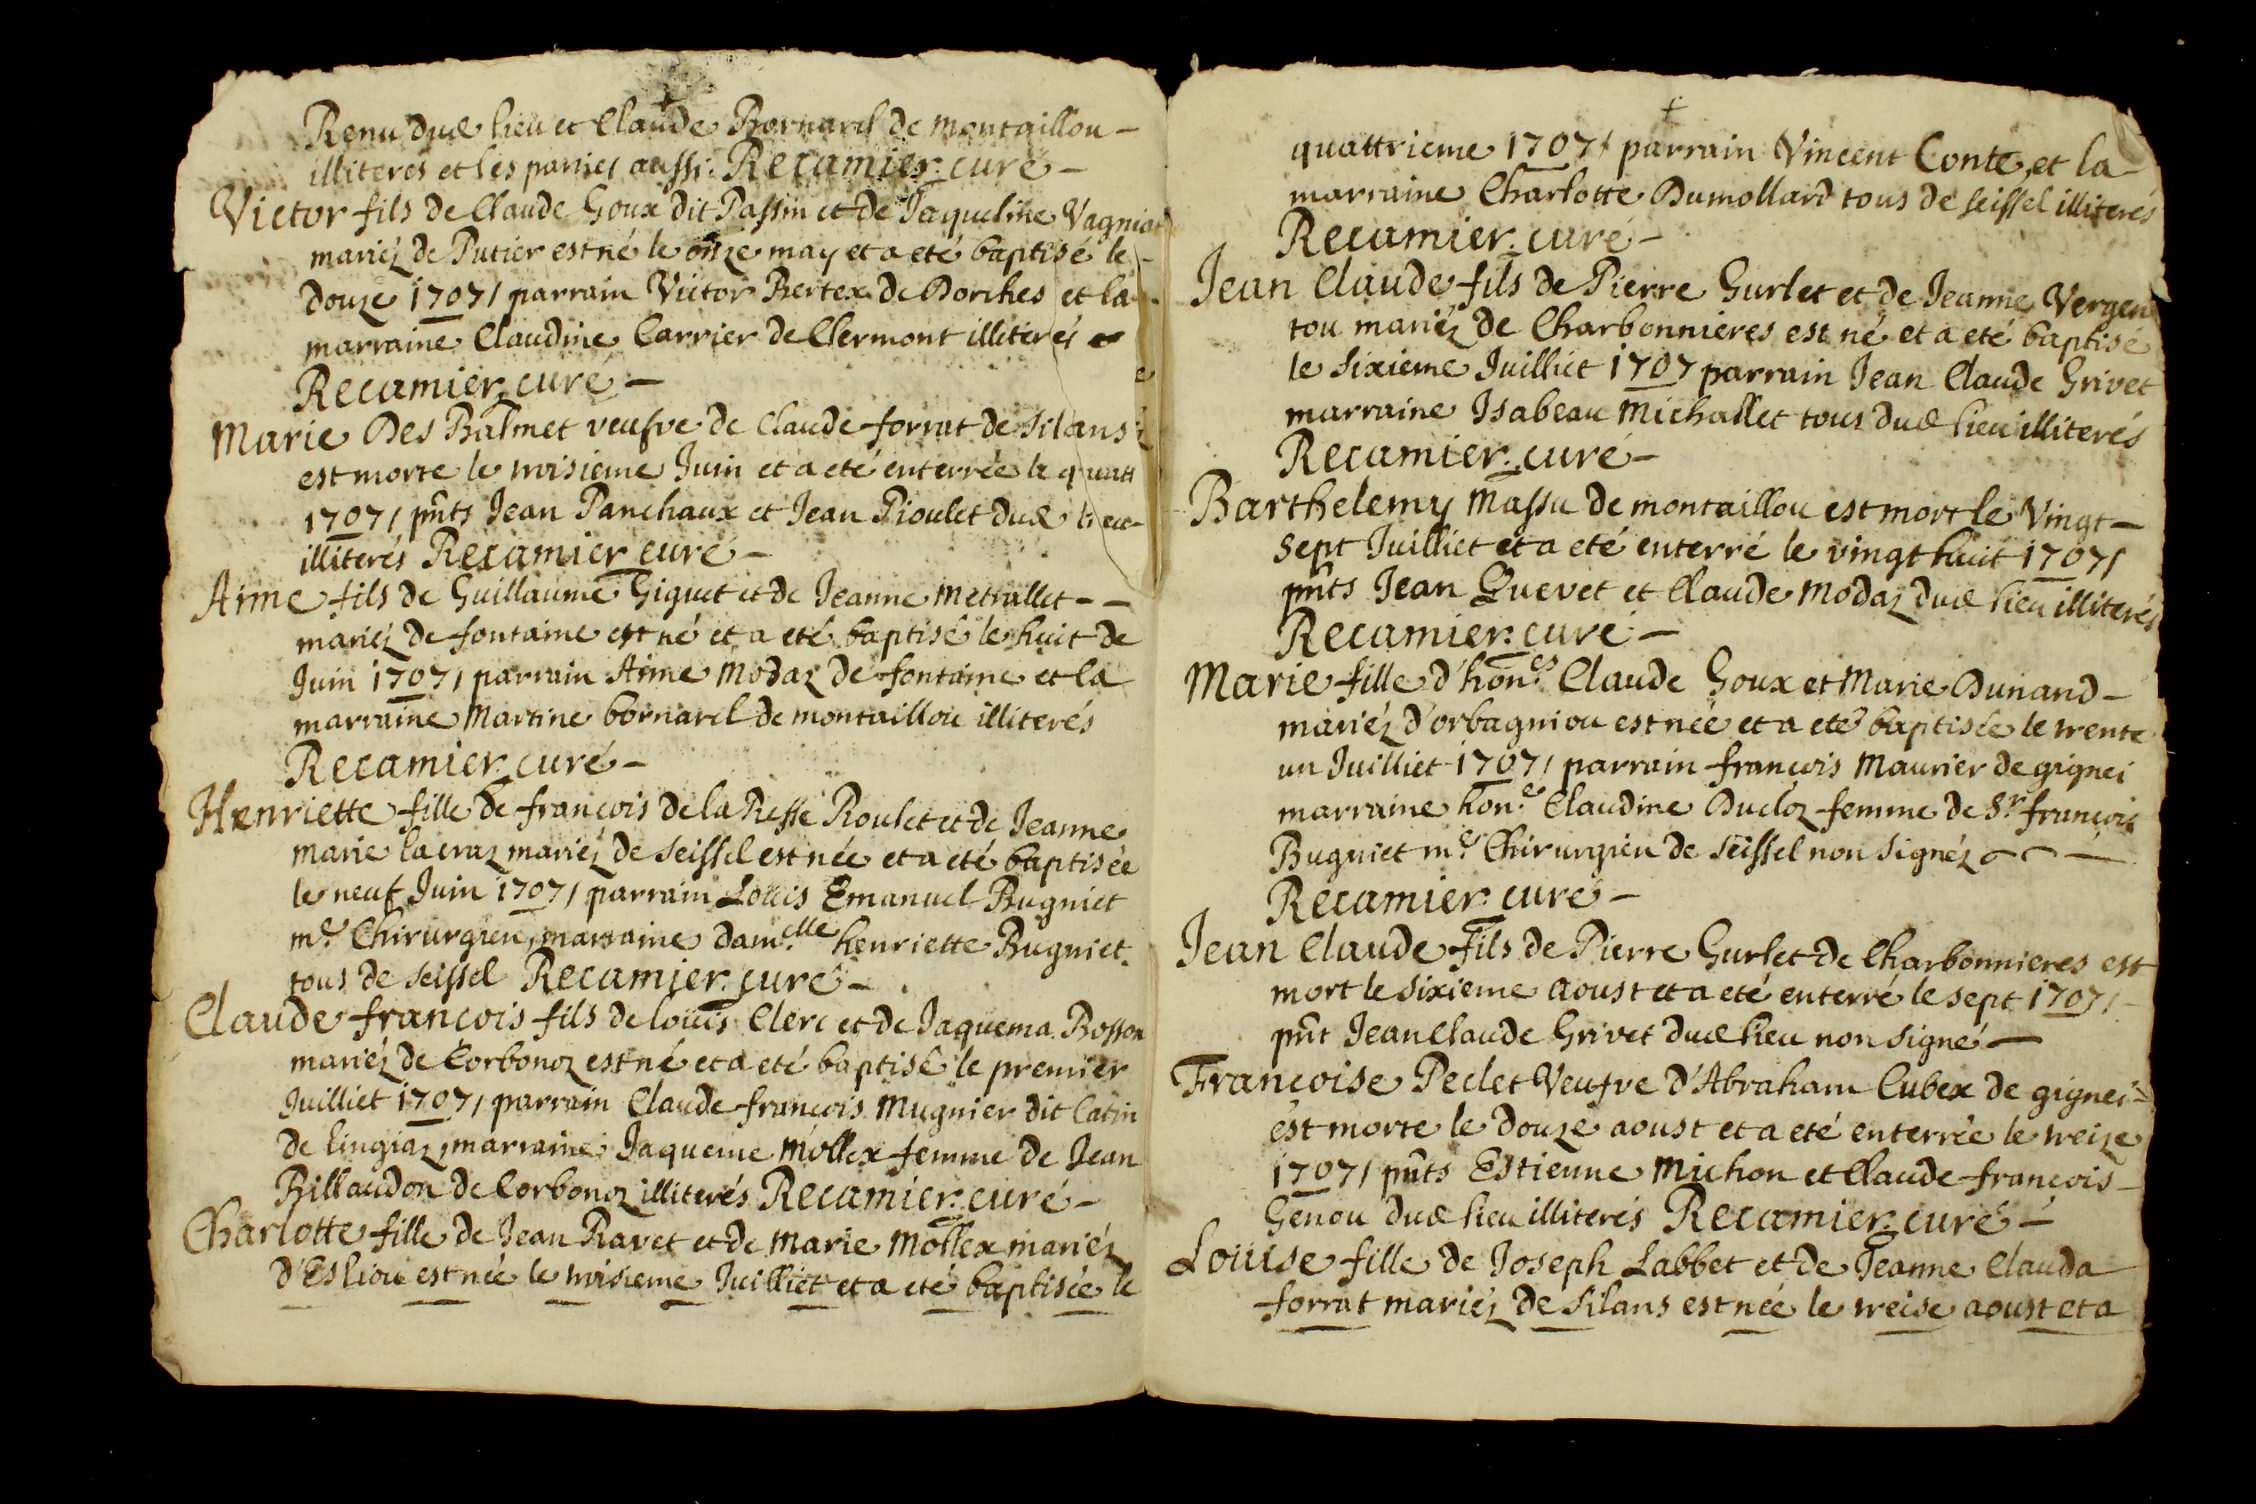 Renu dud lieu et Claude Bornarel de montaillou –
illiterés et les parties aussi. Recamier curé –
Victor fils de Claude Goux dit Passin et de Jaqueline Vagniot
mariéz de Putier est né le onze may et a eté baptisé le –
douze 1707/ parrain Victor Bertex de Dorches et la
marraine Claudine Carrier de Clermont illiterés
Recamier curé –
Marie Des Balmet veufve de Claude forrat de Silans
est morte le troisieme Juin et a eté enterrée le quatt
1707/ pnts Jean Panchaux et Jean Pioulet dud lieu
illiterés Recamier curé –
Aime fils de Guillaume Giguet et de Jeanne Metrallet – –
mariéz de fontaine est né et a eté baptisé le huit de
Juin 1707/ parrain Aime Modaz de fontaine et la
marraine Martine bornarel de montaillou illiterés
Recamier curé –
Henriette fille de francois de la Pesse Roulet et de Jeanne
Marie la craz mariéz de Seissel est née et a eté baptisée
le neuf Juin 1707/ parrain Louis Emanuel Bugniet
me. Chirurgien, marraine dam.elle henriette Bugniet.
tous de Seissel Recamier curé –
Claude francois fils de louis Clerc et de Jaquema Bosson
mariéz de Corbonoz est né et a eté baptisé le premier
Juilliet 1707/ parrain Claude francois Mugnier dit Catin
de lingiaz, marraine Jaqueme Mollex femme de Jean
Billaudon de Corbonoz illiterés Recamier curé –
Charlotte fille de Jean Ravet et de Marie Mollex mariéz
d'Esliou est née le troisieme Juilliet et a eté baptisée le
quattrieme 1707/ parrain Vincent Conte, et la
marraine Charlotte Dumollard tous de Seissel illiterés
Recamier curé –
Jean Claude fils de Pierre Gurlet et de Jeanne Vergen
tou mariéz de Charbonnieres est né et a eté baptisé
le sixieme Juilliet 1707 parrain Jean Claude Grivet
marraine Isabeau Michallet tous dud lieu illiterés
Recamier curé –
Barthelemy Massu de montaillou est mort le Vingt –
sept Juilliet et a eté enterré le vingt huit 1707/
pnts Jean Quevet et Claude Modaz dud lieu illiterés
Recamier curé –
Marie fille d'hon.es Claude Goux et Marie Dunand –
mariéz d'orbagniou est née et a eté baptisée le trente
un Juilliet 1707/ parrain francois Maurier de gignei
marraine hon.e Claudine Ducloz femme de Sr francois
Bugniet me. Chirurgien de Seissel non signéz –
Recamier curé –
Jean Claude fils de Pierre Gurlet de Charbonnieres est
mort le sixieme aoust et a eté enterré le sept 1707/ –
pnt Jean Claude Grivet dud lieu non signé –
Francoise Peclet Veufve d'Abraham Cubex de gignei =
est morte le douze aoust et a eté enterrée le treize
1707/ pnts Estienne Michon et Claude francois –
Genou dud lieu illiterés Recamier curé –
Louise fille de Joseph Labbet et de Jeanne Clauda
forrat mariéz de Silans est née le treise aoust et a